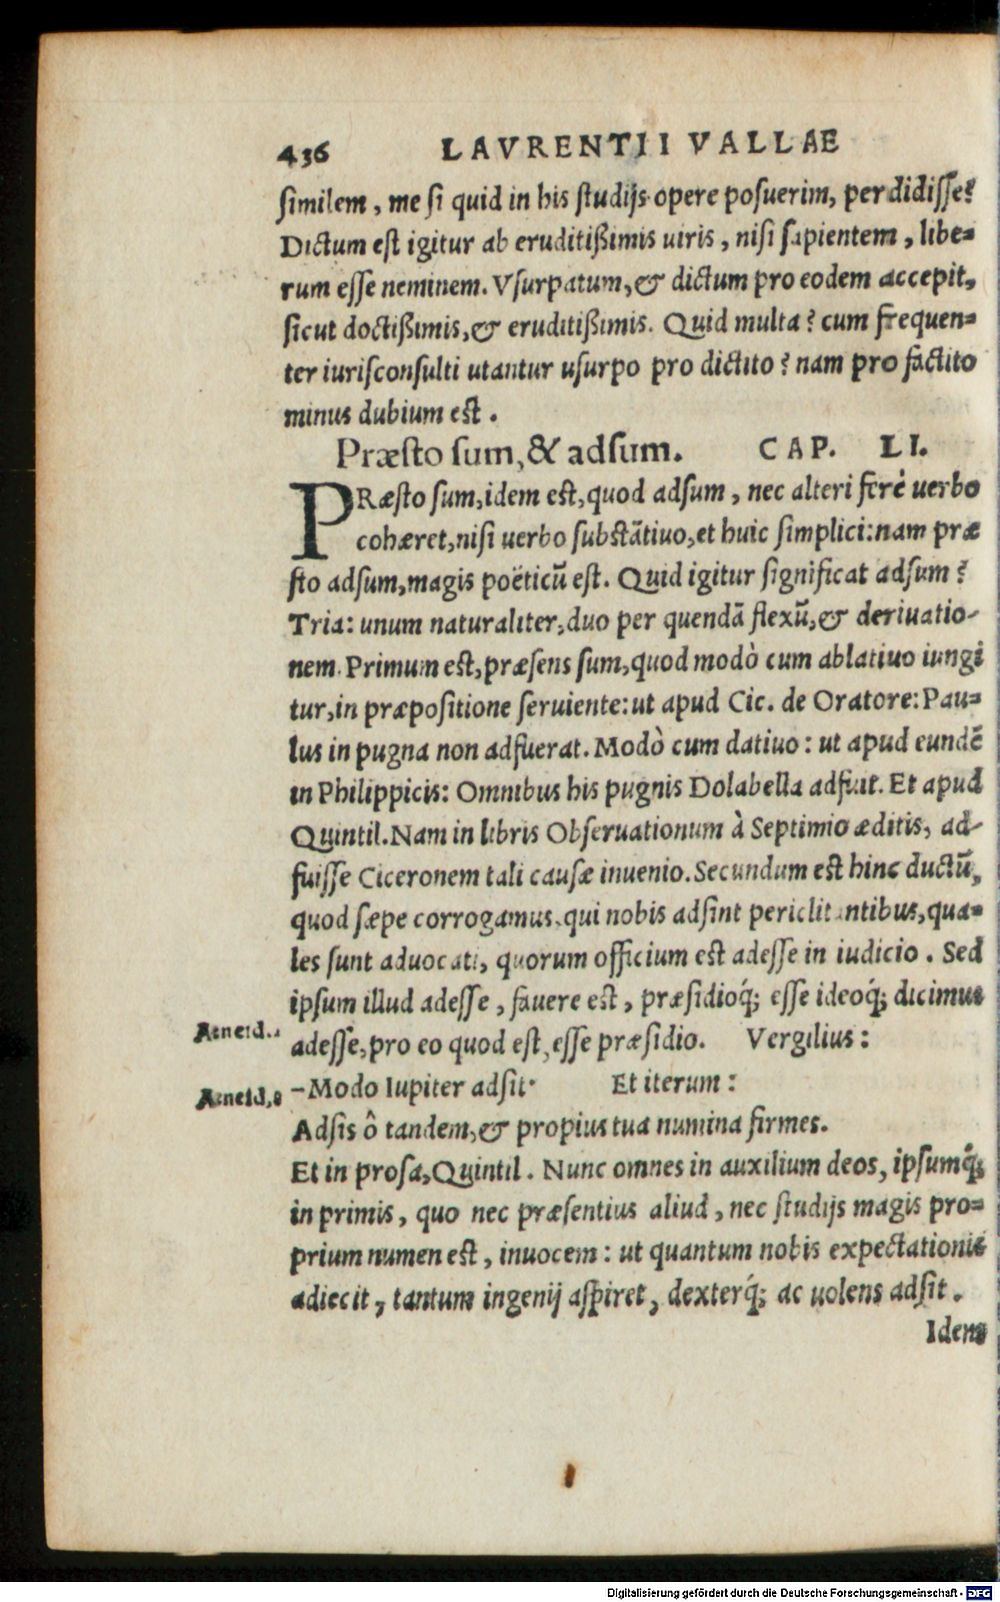 436 LAVRENTII VALLAE
similem, me si quid in his studijs opere posuerim, perdidisse?
Dictum est igitur ab eruditißimis uiris, nisi sapientem, libe=
rum esse neminem. Vsurpatum, & dictum pro eodem accepit,
sicut doctißimis, & eruditißimis. Quid multa? cum frequen=
ter iurisconsulti utantur usurpo pro dictito? nam pro factito
minus dubium est.
Præsto sum, & adsum. CAP. LI.
PRæsto sum, idem est, quod adsum, nec alteri ferè uerbo
cohæret, nisi uerbo substãtiuo, et huic simplici: nam præ
sto adsum, magis poëticũ est. Quid igitur significat adsum?
Tria: unum naturaliter, duo per quendã flexũ, & deriuatio-
nem. Primum est, præsens sum, quod modò cum ablatiuo iungi
tur, in præpositione seruiente: ut apud Cic. de Oratore: Pau=
lus in pugna non adfuerat. Modò cum datiuo: ut apud eundẽ
in Philippicis: Omnibus his pugnis Dolabella adfuit. Et apud
Quintil. Nam in libris Obseruationum à Septimio æditis, ad-
fuisse Ciceronem tali causæ inuenio. Secundum est hinc ductũ,
quod sæpe corrogamus, qui nobis adsint periclitantibus, qua=
les sunt aduocati, quorum officium est adesse in iudicio. Sed
ipsum illud adesse, fauere est, præsidioq́; esse ideoq́; dicimus
Aeneid.
adesse, pro eo quod est, esse præsidio. Vergilius:
Aeneid. 8
-Modo Iupiter adsit. Et iterum:
Adsis ô tandem, & propius tua numina firmes.
Et in prosa, Quintil. Nunc omnes in auxilium deos, ipsumq́;
in primis, quo nec præsentius aliud, nec studijs magis pro=
prium numen est, inuocem: ut quantum nobis expectationis
adiecit, tantum ingenij aspiret, dexterq́; ac uolens adsit.
Idem
Digitalisierung gefördert durch die Deutsche Forschungsgemeinschaft - DFG